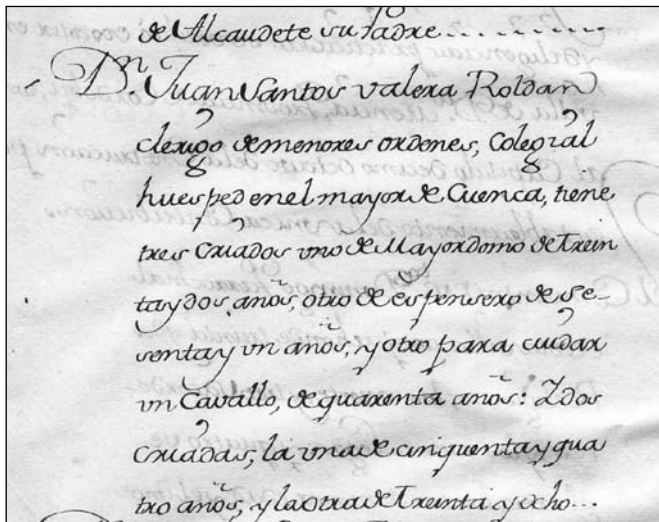 de Alcaudete su Padre..........
Dn. Juan Santos Valera Roldan
clerigo de menores ordenes, Colegial
huesped en el mayor de Cuenca, tiene
tres Criados uno de Mayordomo de Trein
ta y dos años, otro de espensero de se-
senta y un años, y otro para cuidar
un Cavallo, de quarenta años: Y dos
Criadas, la una de cinquenta y qua
tro años, y la otra de Treinta y ocho...